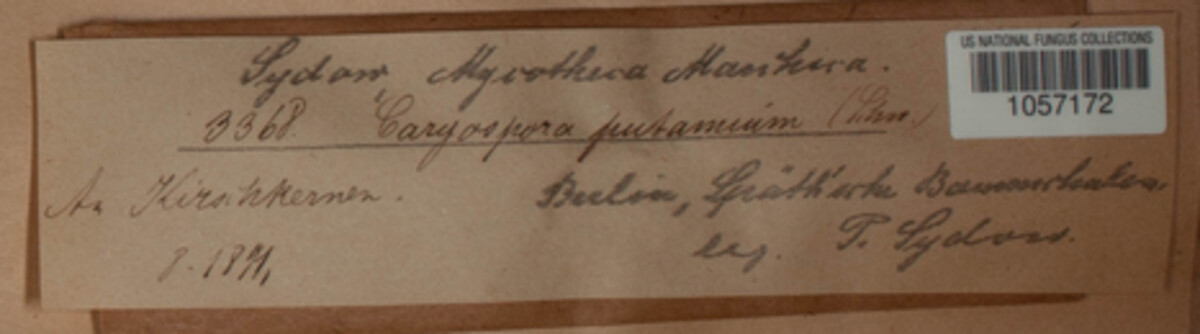 Sydow, Mycotheca Marchica.
3368. Caryospora putaminum (Schw.)
An Kirschkernen.
Berlin, Späth'sche Baumschulen.
8. 1891,
leg. P. Sydow.
US NATIONAL FUNGUS COLLECTIONS
1057172